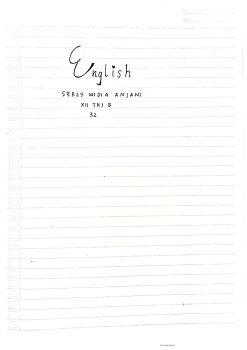 English
SERLY WIDIA ANJANI
XII TKJ B
32